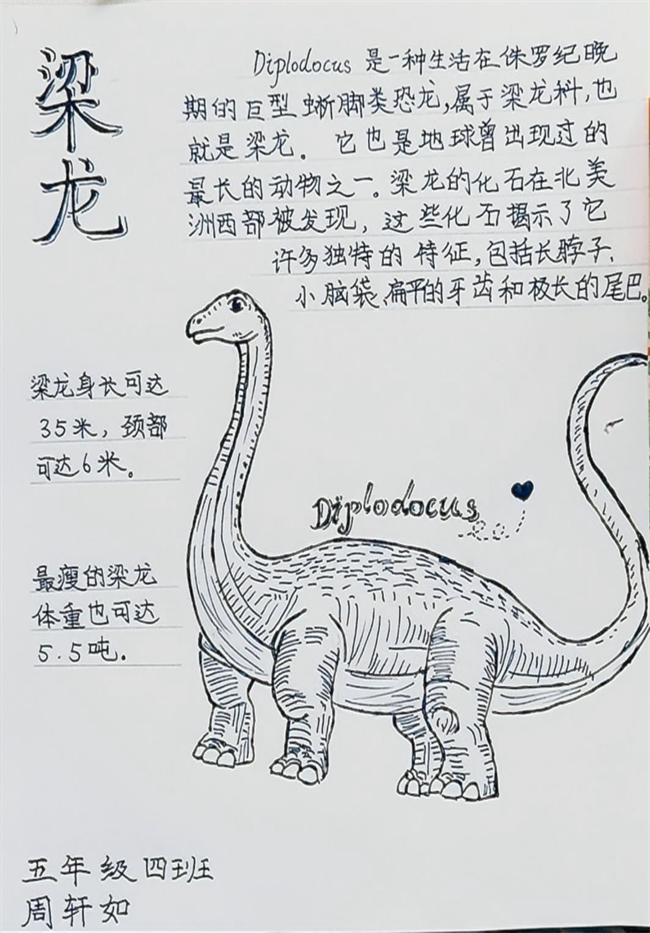 梁龙
Diplodocus 是一种生活在侏罗纪晚
期的巨型蜥脚类恐龙,属于梁龙科,也
就是梁龙。它也是地球曾出现过的
最长的动物之一。梁龙的化石在北美
洲西部被发现,这些化石揭示了它
许多独特的特征,包括长脖子、
小脑袋、扁平的牙齿和极长的尾巴。
梁龙身长可达
35米,颈部
可达6米。
Diplodocus
最瘦的梁龙
体重也可达
5.5吨。
五年级四班
周轩如